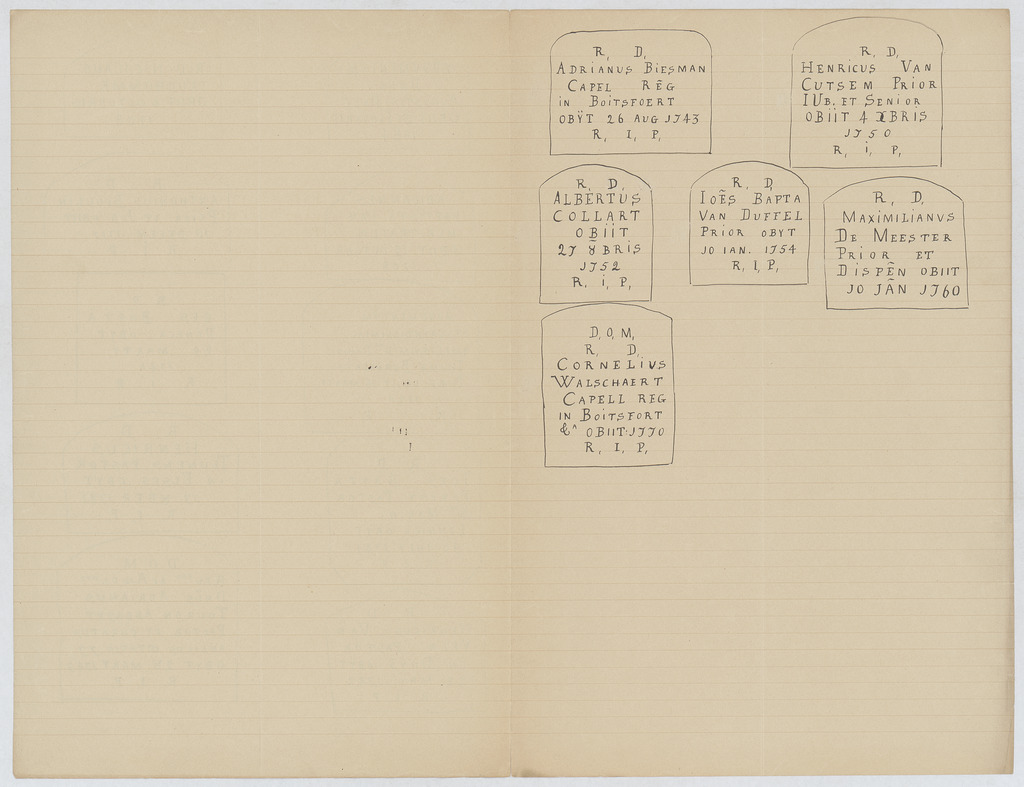 R, D,
ADRIANUS BIESMAN
CAPEL REG̃
in BOITSFOERT
OBŸT 26 AUG 1743
R, I, P,
R, D,
HENRICUS VAN
CUTSEM PRIOR
IUB. ET SENIOR
OBIIT 4 XBRIS
1750
R, i, P,
R, D,
ALBERTUS
COLLART
OBIIT
27 8̃BRIS
1752
R, i, P,
R, D,
IOẼS BAPTA
VAN DUFFEL
PRIOR OBYT
10 IAN. 1754
R, I, P,
R, D,
MAXIMILIANVS
DE MEESTER
PRIOR ET
DISPEÑ OBIIT
10 JÃN 1760
D, O, M,
R, D,
CORNELIVS
WALSCHAERT
CAPELL REG
IN BOITSFORT
&ᴬ OBIIT·1770
R, I, P,